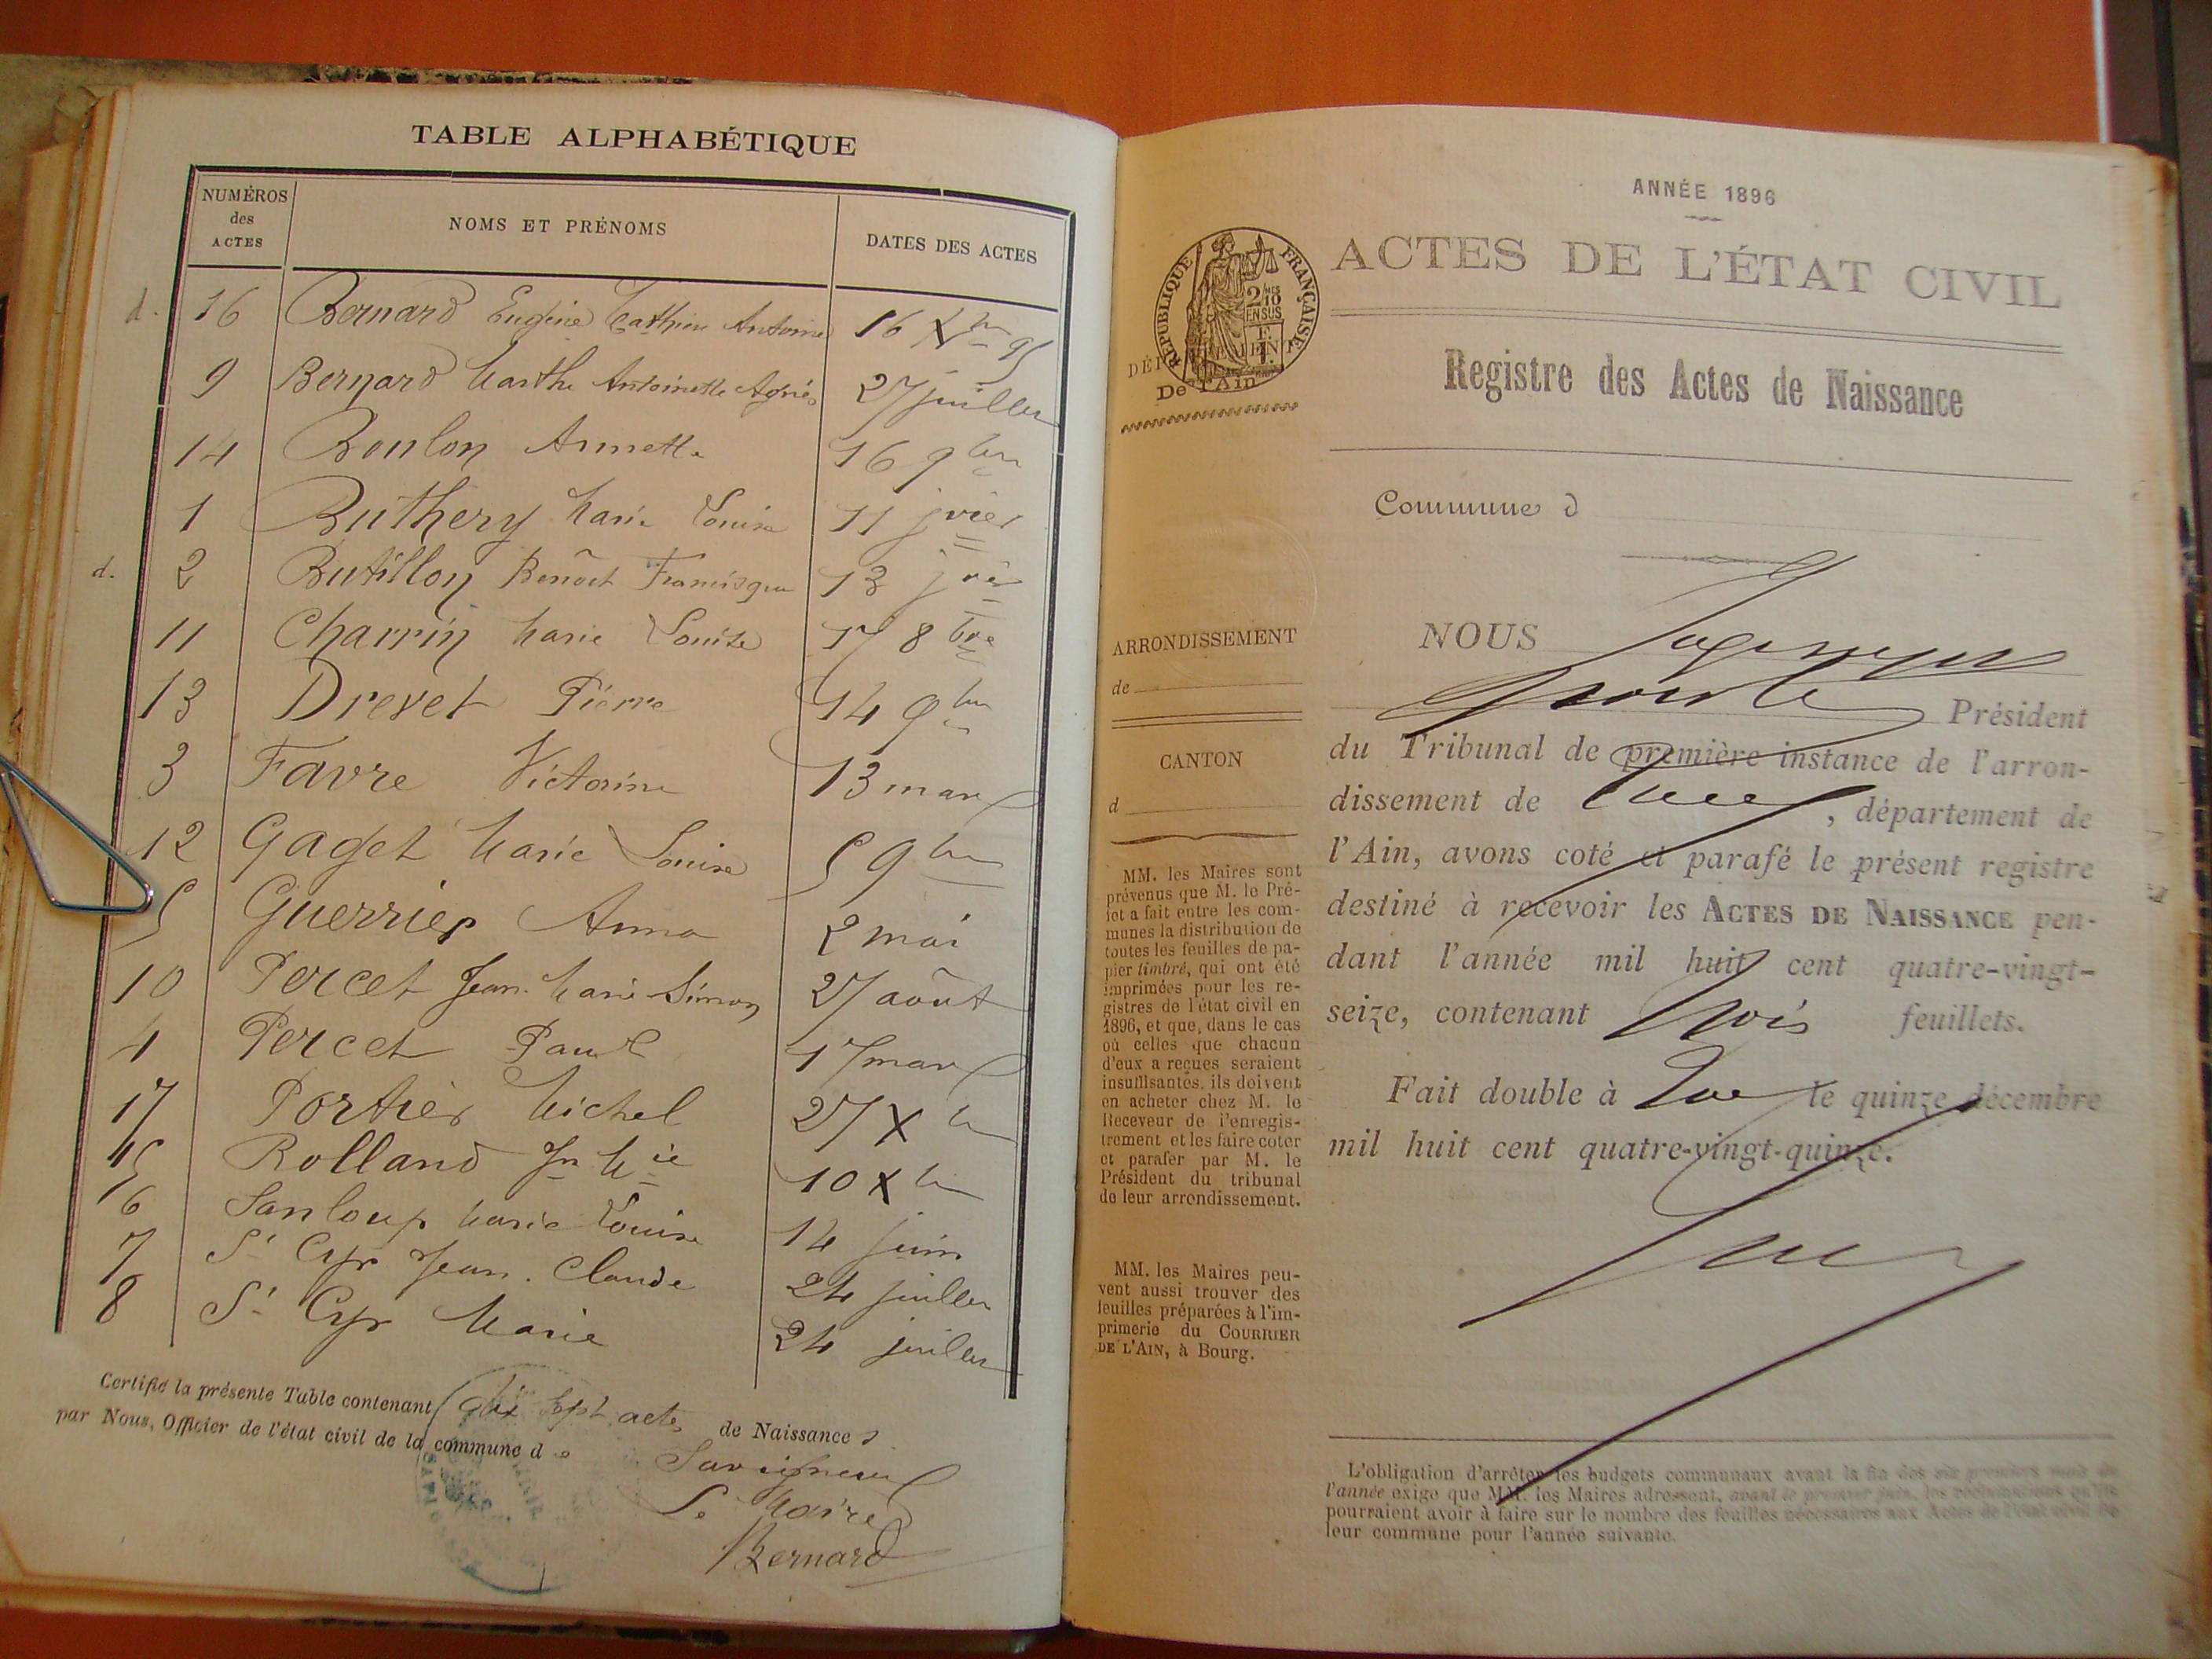 TABLE ALPHABÉTIQUE
NUMÉROS des ACTES
NOMS ET PRÉNOMS
DATES DES ACTES
d. 16 Bernard Eugène Mathieu Antoine 16 Xbre 95
9 Bernard Marthe Antoinette Agnès 27 juillet
14 Boulon Annette 16 9bre
1 Buthery Marie Louise 11 jvier
d. 2 Butillon Benoît Francisque 13 jvier
11 Charrin Marie Louise 17 8bre
13 Drevet Pierre 14 9bre
3 Favre Victorine 13 mars
12 Gaget Marie Louise 5 9bre
5 Guerrier Anna 2 mai
10 Percet Jean-Marie-Simon 27 août
4 Percet Paul 17 mars
17 Portier Michel 27 Xbre
15 Rolland Jn Mie 10 Xbre
6 Sanloup Marie Louise 14 juin
7 St Cyr Jean-Claude 24 juillet
8 St Cyr Marie 24 juillet
Certifié la présente Table contenant dix sept actes de Naissances
par Nous, Officier de l'état civil de la commune de Savigneux
Le Maire
Bernard
ANNÉE 1896
ACTES DE L'ÉTAT CIVIL
RÉPUBLIQUE FRANÇAISE
2/10 EN SUS
De l'Ain
Registre des Actes de Naissance
Commune d
ARRONDISSEMENT
de
CANTON
d
MM. les Maires sont
prévenus que M. le Pré-
fet a fait entre les com-
munes la distribution de
toutes les feuilles de pa-
pier timbré, qui ont été
imprimées pour les re-
gistres de l'état civil en
1896, et que, dans le cas
où celles que chacun
d'eux a reçues seraient
insuffisantes, ils doivent
en acheter chez M. le
Receveur de l'enregis-
trement et les faire coter
et parafer par M. le
Président du tribunal
de leur arrondissement.
MM. les Maires peu-
vent aussi trouver des
feuilles préparées à l'im-
primerie du COURRIER
DE L'AIN, à Bourg.
NOUS
Président
du Tribunal de première instance de l'arron-
dissement de , département de
l'Ain, avons coté et parafé le présent registre
destiné à recevoir les ACTES DE NAISSANCE pen-
dant l'année mil huit cent quatre-vingt-
seize, contenant trois feuillets.
Fait double à le quinze décembre
mil huit cent quatre-vingt-quinze.
L'obligation d'arrêter les budgets communaux avant la fin des six premiers mois de
l'année exige que MM. les Maires adressent, avant le premier juin, les réclamations qu'ils
pourraient avoir à faire sur le nombre des feuilles nécessaires aux Actes de l'état civil de
leur commune pour l'année suivante.